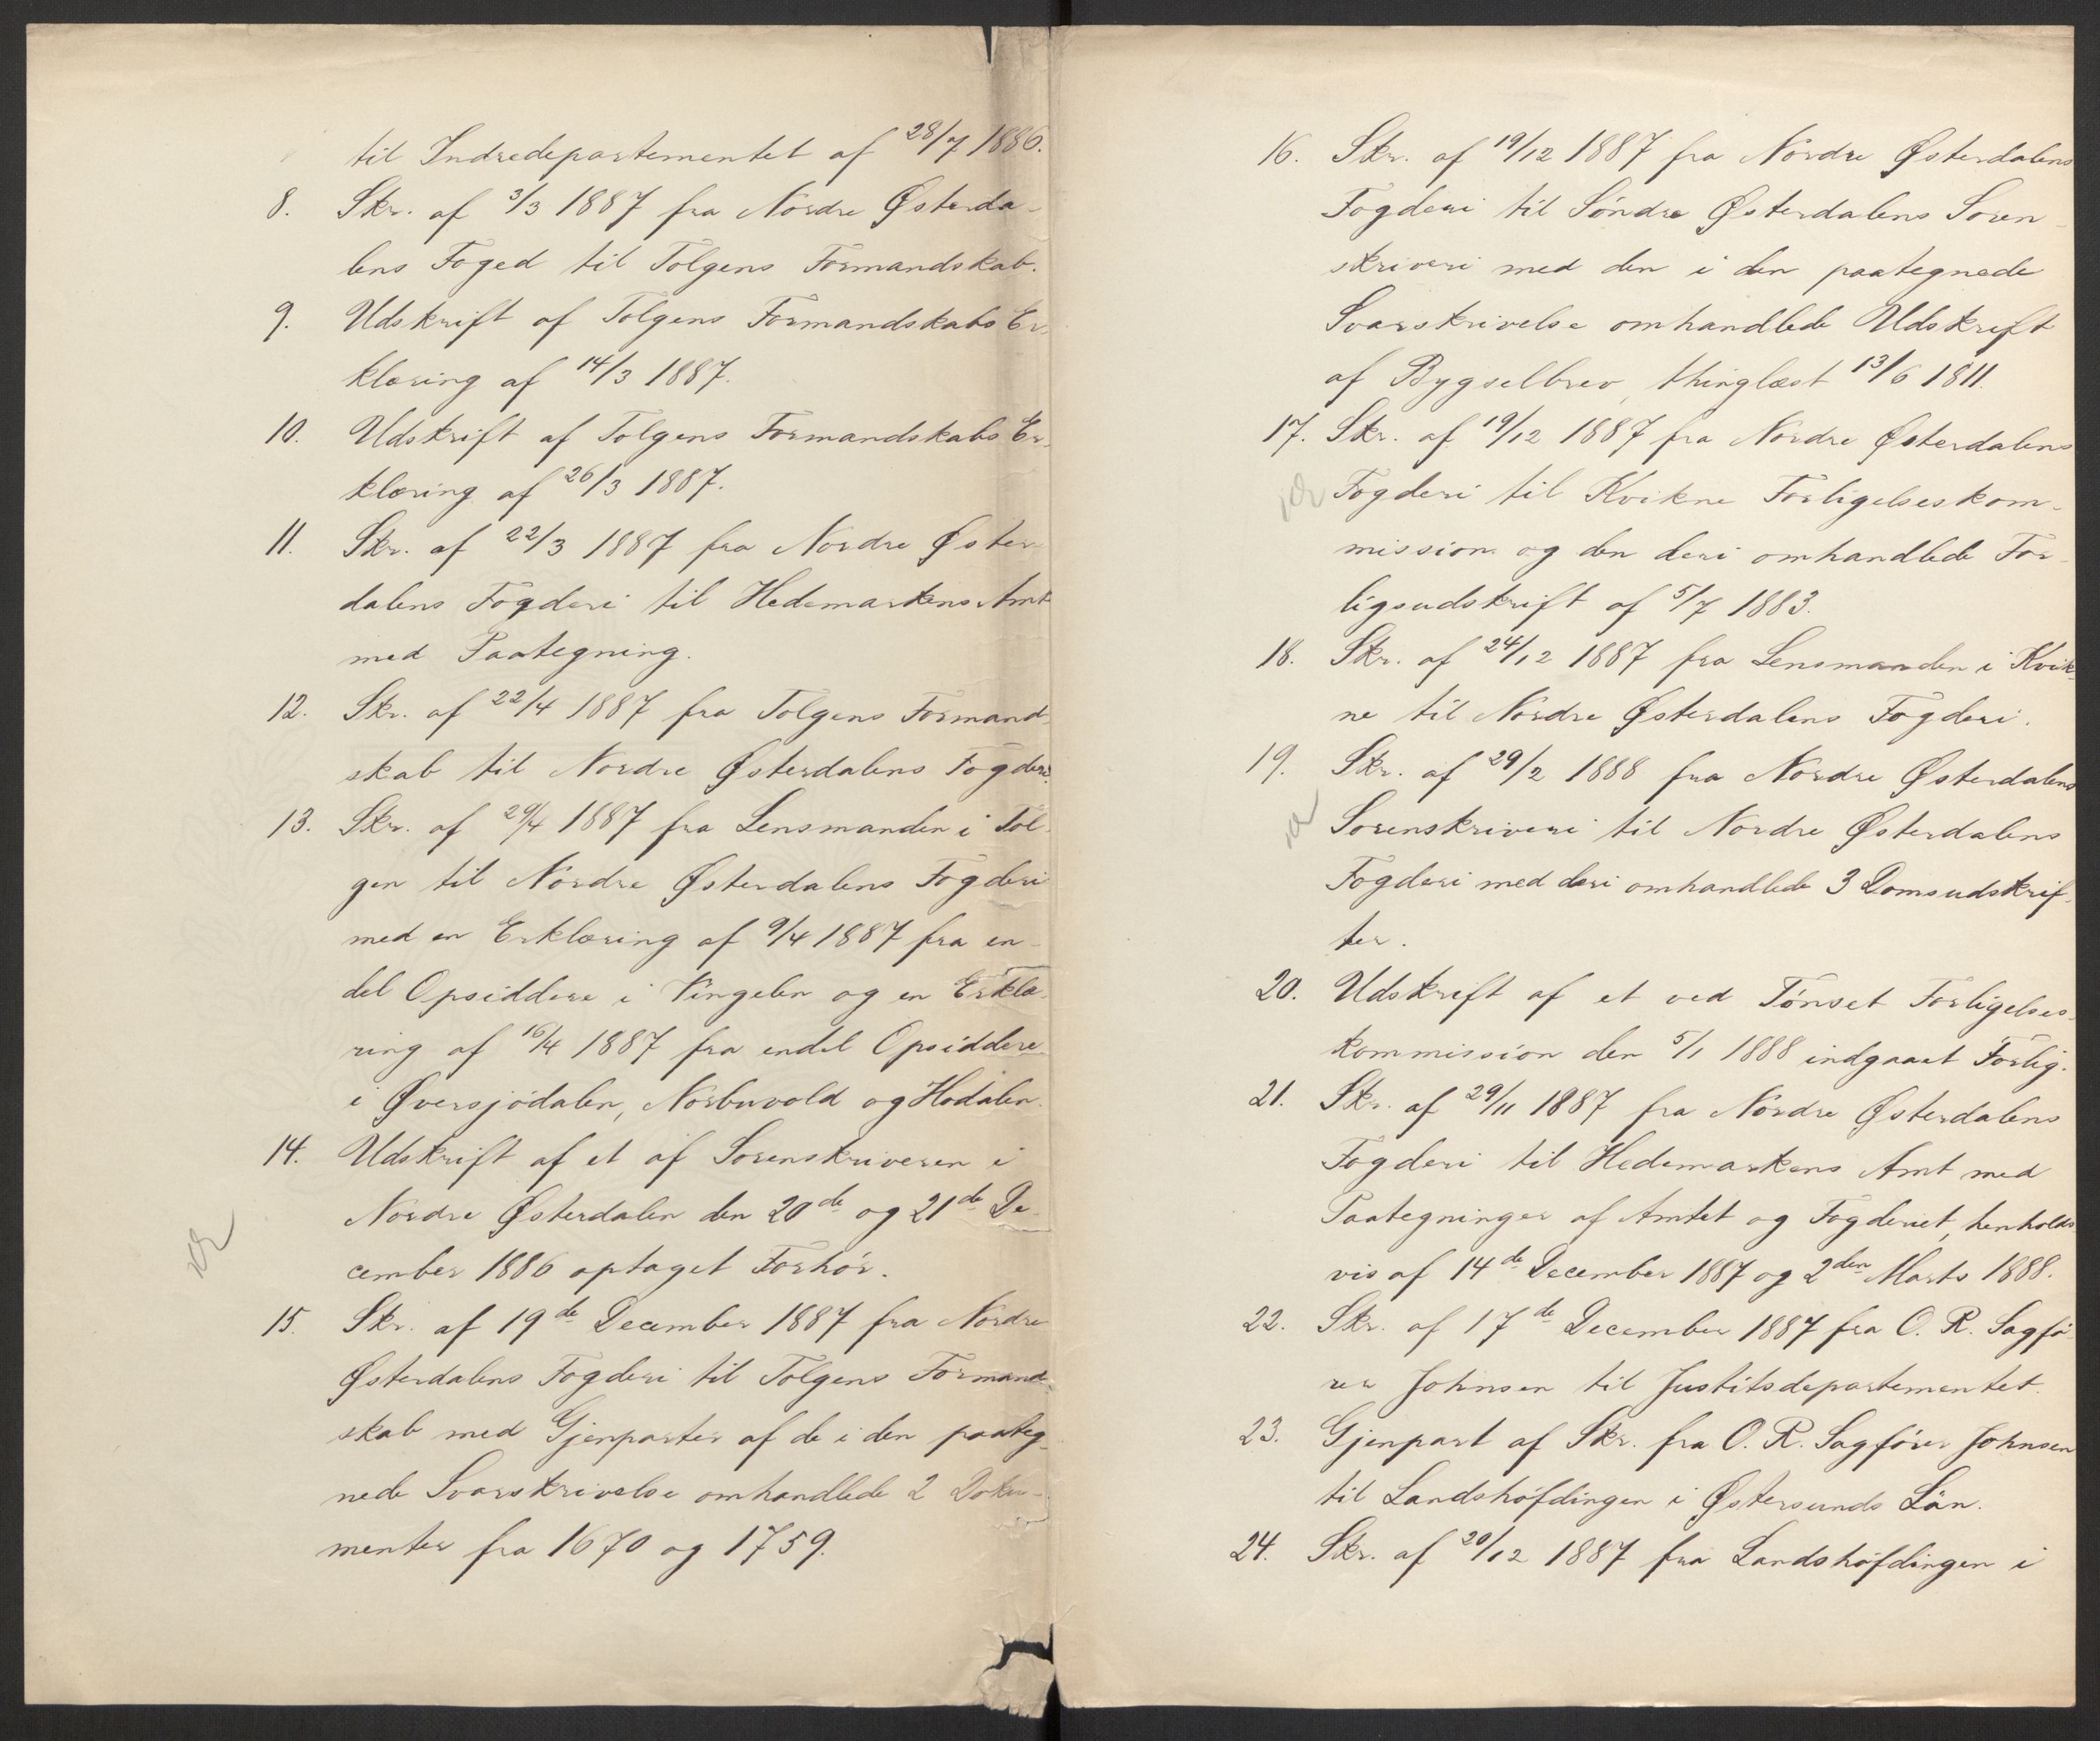 til Indredepartementet af 28/7 1886.
8. Skr. af 3/3 1887 fra Nordre Østerda-
lens Foged til Tolgens Formandskab.
9. Udskrift af Tolgens Formandskabs Er-
klæring af 14/3 1887.
10. Udskrift af Tolgens Formandskabs Er-
klæring af 26/3 1887.
11. Skr. af 22/3 1887 fra Nordre Øster-
dalens Fogderi til Hedemarkens Amt
med Paategning.
12. Skr. af 22/4 1887 fra Tolgens Formand-
skab til Nordre Østerdalens Fogderi.
13. Skr. af 29/4 1887 fra Lensmanden i Tol-
gen til Nordre Østerdalens Fogderi
med en Erklæring af 9/4 1887 fra en-
del Opsiddere i Vingelen og en Erklæ-
ring af 16/4 1887 fra endel Opsiddere
i Øversjødalen, Norbuvold og Hodalen.
14. Udskrift af et af Sorenskriveren i
Nordre Østerdalen den 20de og 21de De-
cember 1886 optaget Forhør.
15. Skr. af 19de December 1887 fra Nordre
Østerdalens Fogderi til Tolgens Formand-
skab med Gjenparter af de i den paateg-
nede Svarskrivelse omhandlede 2 Doku-
menter fra 1670 og 1759.
16. Skr. af 19/12 1887 fra Nordre Østerdalens
Fogderi til Søndre Østerdalens Soren-
skriveri med den i den paategnede
Svarskrivelse omhandlede Udskrift
af Bygselbrev, thinglæst 13/6 1811.
17. Skr. af 19/12 1887 fra Nordre Østerdalens
Fogderi til Kvikne Forligelseskom-
mission og den deri omhandlede For-
ligsudskrift af 5/7 1883.
18. Skr. af 24/12 1887 fra Lensmanden i Kvik-
ne til Nordre Østerdalens Fogderi.
19. Skr. af 29/2 1888 fra Nordre Østerdalens
Sorenskriveri til Nordre Østerdalens
Fogderi med deri omhandlede 3 Domsudskrif-
ter.
20. Udskrift af et ved Tønset Forligelses-
kommission den 5/1 1888 indgaaet Forlig.
21. Skr. af 29/11 1887 fra Nordre Østerdalens
Fogderi til Hedemarkens Amt med
Paategninger af Amtet og Fogderiet, henholds-
vis af 14de December 1887 og 2den Marts 1888.
22. Skr. af 17de December 1887 fra O. R. Sagfø-
rer Johnsen til Justitsdepartementet.
23. Gjenpart af Skr. fra O. R. Sagfører Johnsen
til Landshöfdingen i Østersunds Län.
24. Skr. af 20/12 1887 fra Landshöfdingen i